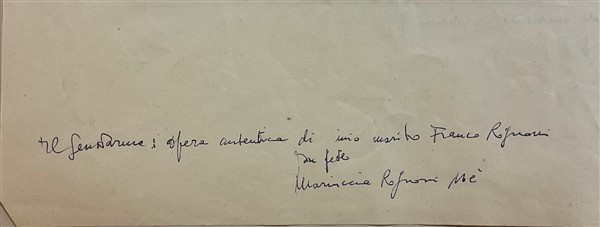 Il Gendarme : opera autentica di mio marito Franco Rognoni
In fede
Mariuccia Rognoni Noè